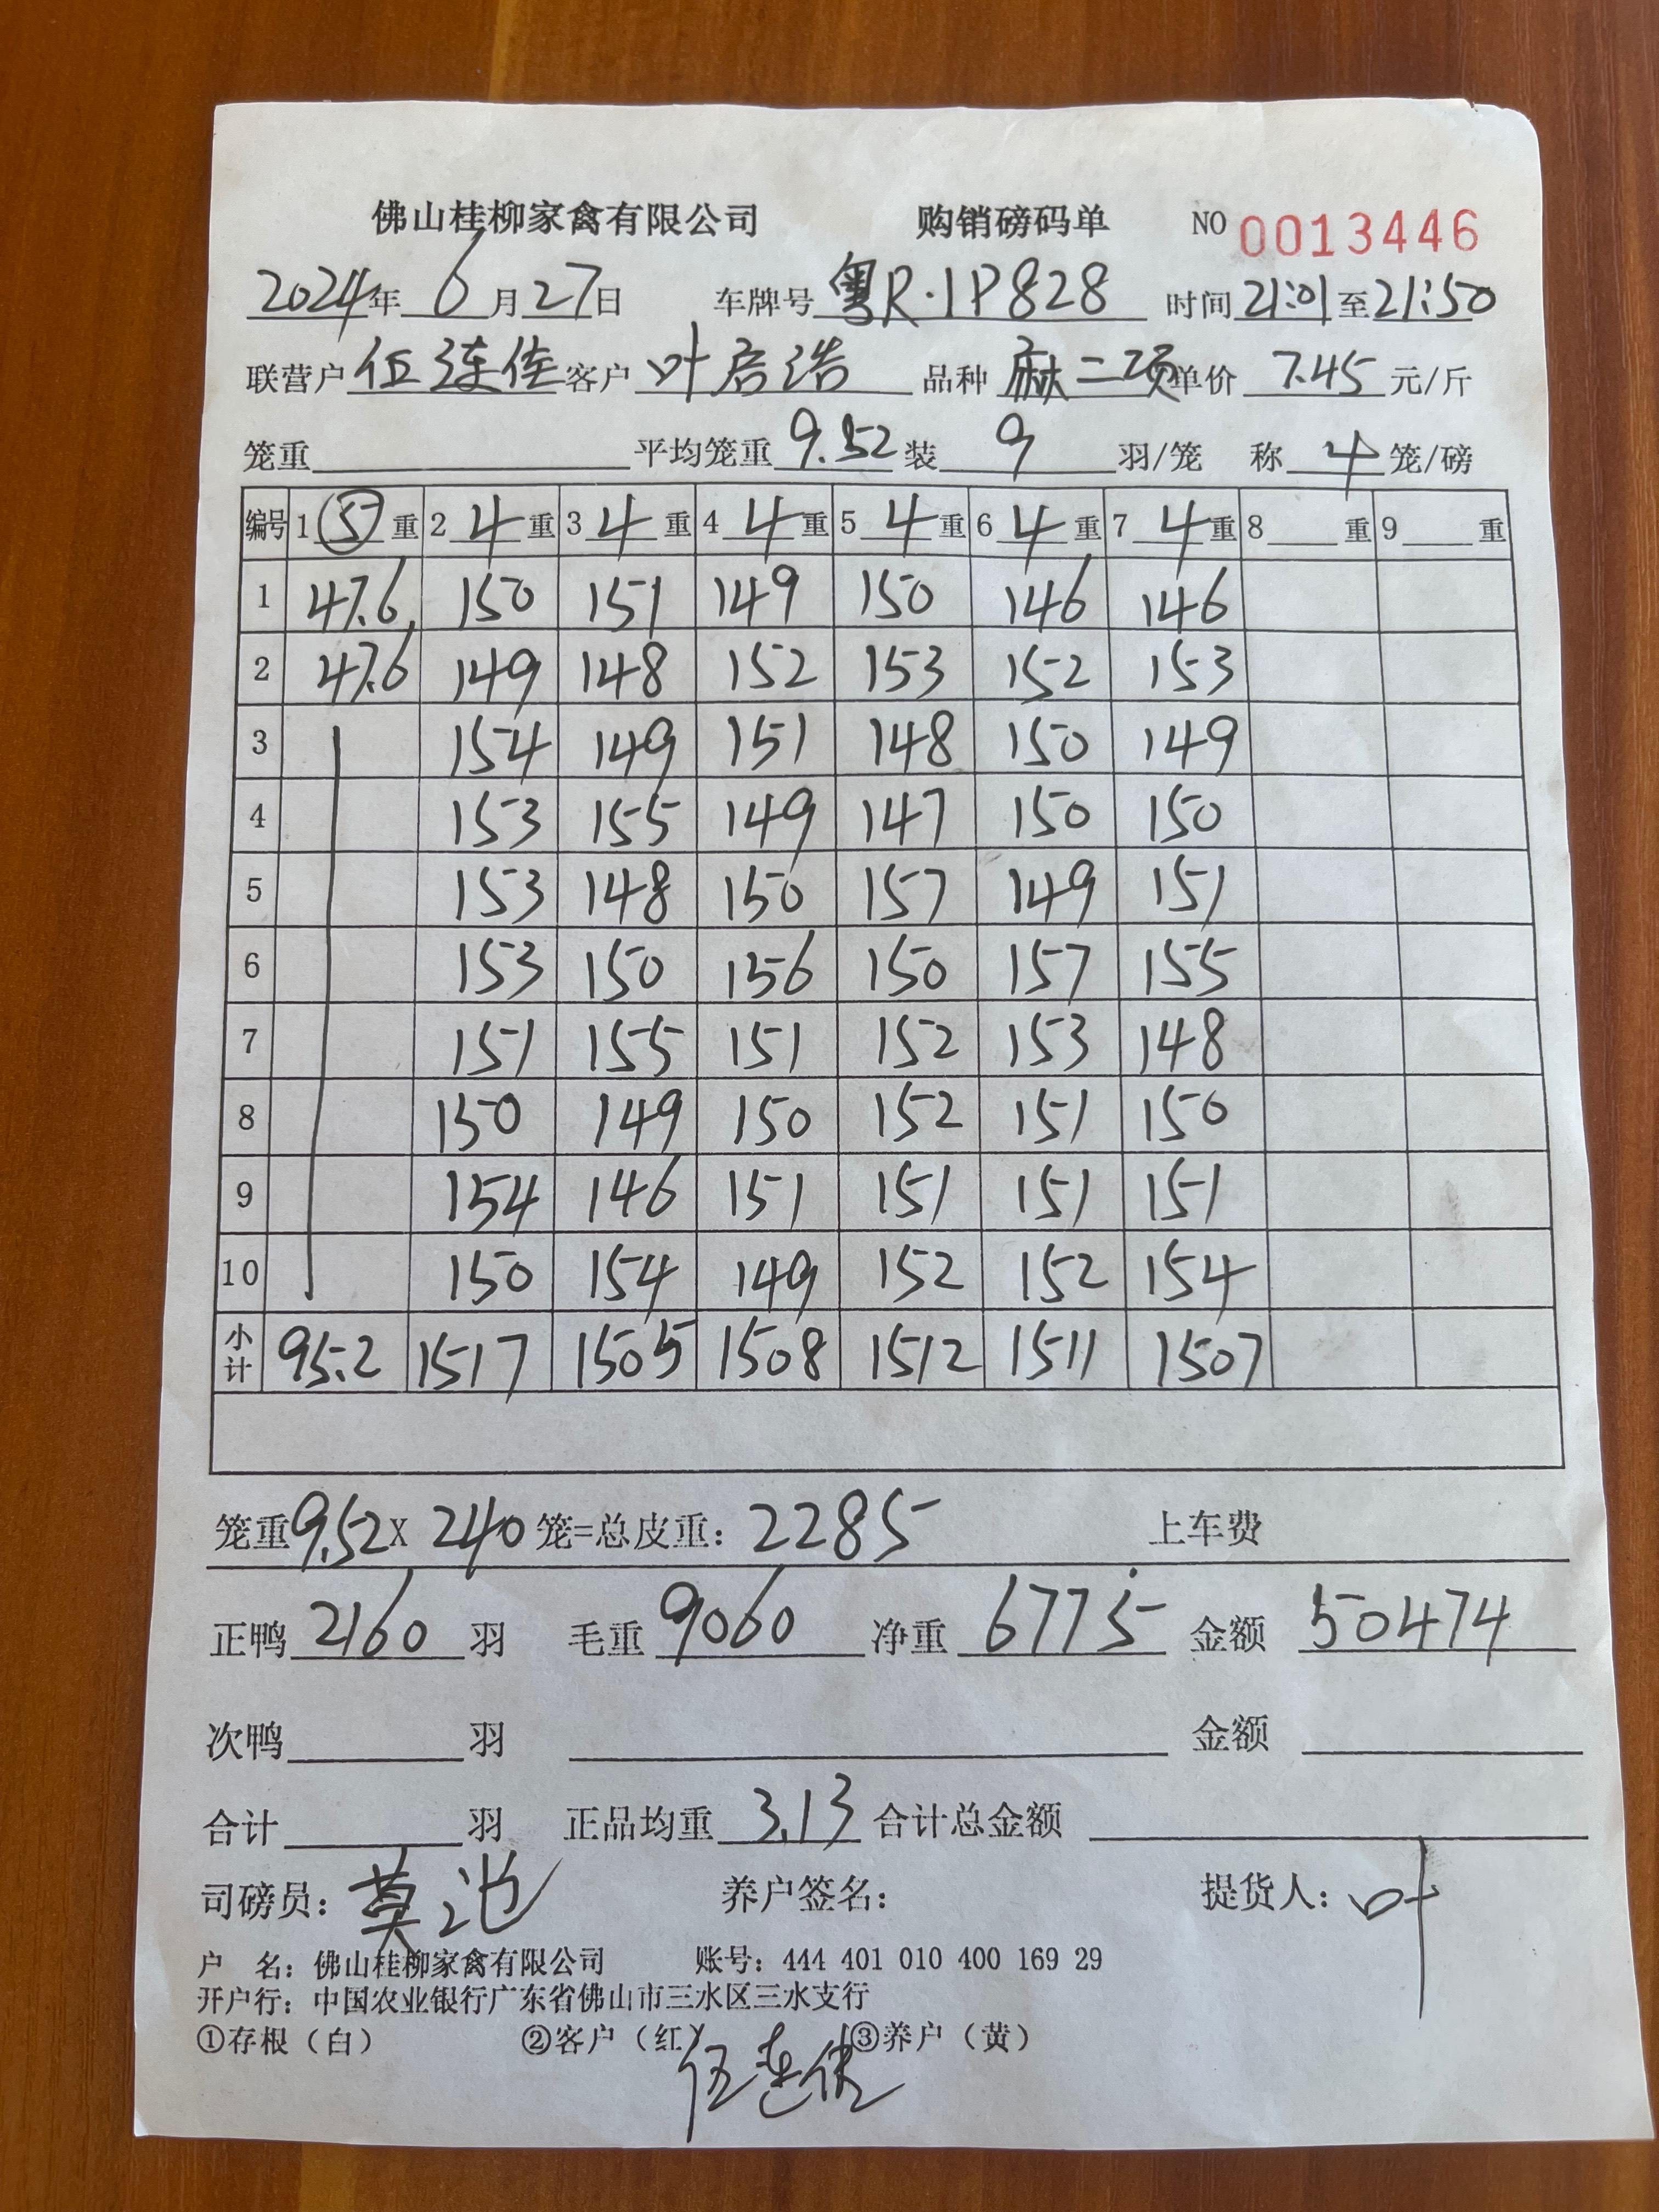 佛山桂柳家禽有限公司 购销磅码单 NO 0013446
2024年 6月27日 车牌号 粤R·1P828 时间21:01至21:50
联营户 伍连佳 客户 叶启浩 品种 麻二项 单价 7.45 元/斤
笼重 平均笼重 9.52 装 9 羽/笼 称 4 笼/磅
编号 1 ⑤ 重 2 4 重 3 4 重 4 4 重 5 4 重 6 4 重 7 4 重 8 重 9 重
1 47.6 150 151 149 150 146 146
2 47.6 149 148 152 153 152 153
3 154 149 151 148 150 149
4 153 155 149 147 150 150
5 153 148 150 157 149 151
6 153 150 156 150 157 155
7 151 155 151 152 153 148
8 150 149 150 152 151 150
9 154 146 151 151 151 151
10 150 154 149 152 152 154
小计 95.2 1517 1505 1508 1512 1511 1507
笼重9.52X 240 笼=总皮重: 2285 上车费
正鸭 2160 羽 毛重 9060 净重 6775 金额 50474
次鸭 羽 金额
合计 羽 正品均重 3.13 合计总金额
司磅员: 莫池 养户签名: 提货人: 叶
户 名: 佛山桂柳家禽有限公司 账号: 444 401 010 400 169 29
开户行: 中国农业银行广东省佛山市三水区三水支行
①存根（白） ②客户（红） ③养户（黄）
伍连佳